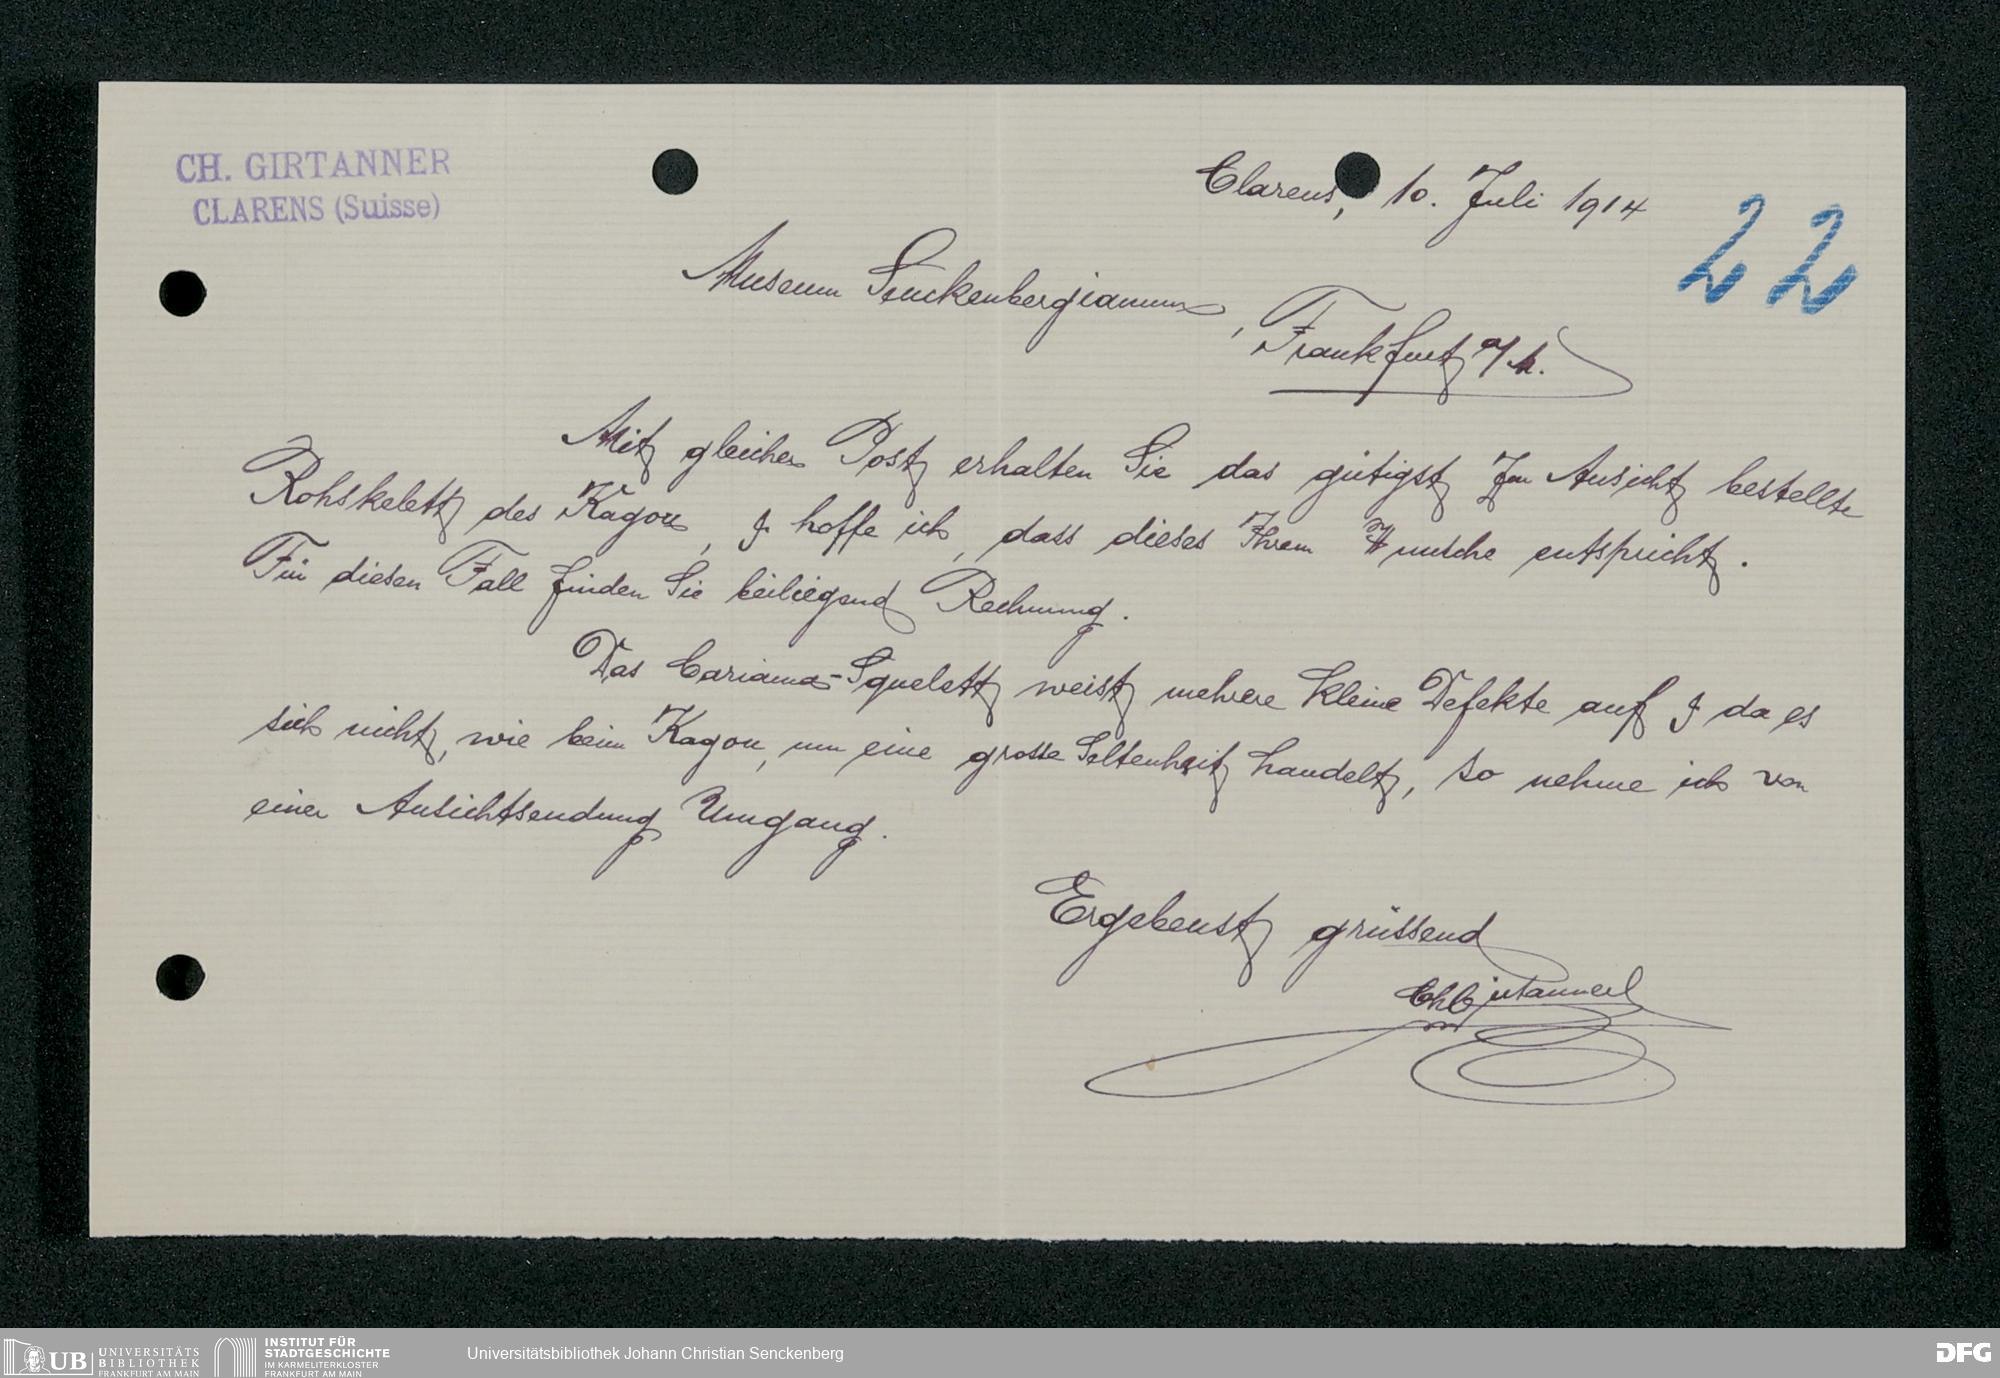 CH. GIRTANNER
CLARENS (Suisse)
Clarens, 10. Juli 1914
22
Museum Senckenbergianum,
Frankfurt a/M.
Mit gleicher Post erhalten Sie das gütigst zur Ansicht bestellte
Rohskelett des Kagou, & hoffe ich, dass dieses Ihrem Wunsche entspricht.
Für diesen Fall finden Sie beiliegend Rechnung.
Das Cariama-Squelett weist mehrere kleine Defekte auf & da es
sich nicht, wie beim Kagou, um eine grosse Seltenheit handelt, so nehme ich von
einer Ansichtsendung Umgang.
Ergebenst grüssend
Ch Girtanner
UB UNIVERSITÄTS
BIBLIOTHEK
FRANKFURT AM MAIN
INSTITUT FÜR
STADTGESCHICHTE
IM KARMELITERKLOSTER
FRANKFURT AM MAIN
Universitätsbibliothek Johann Christian Senckenberg
DFG